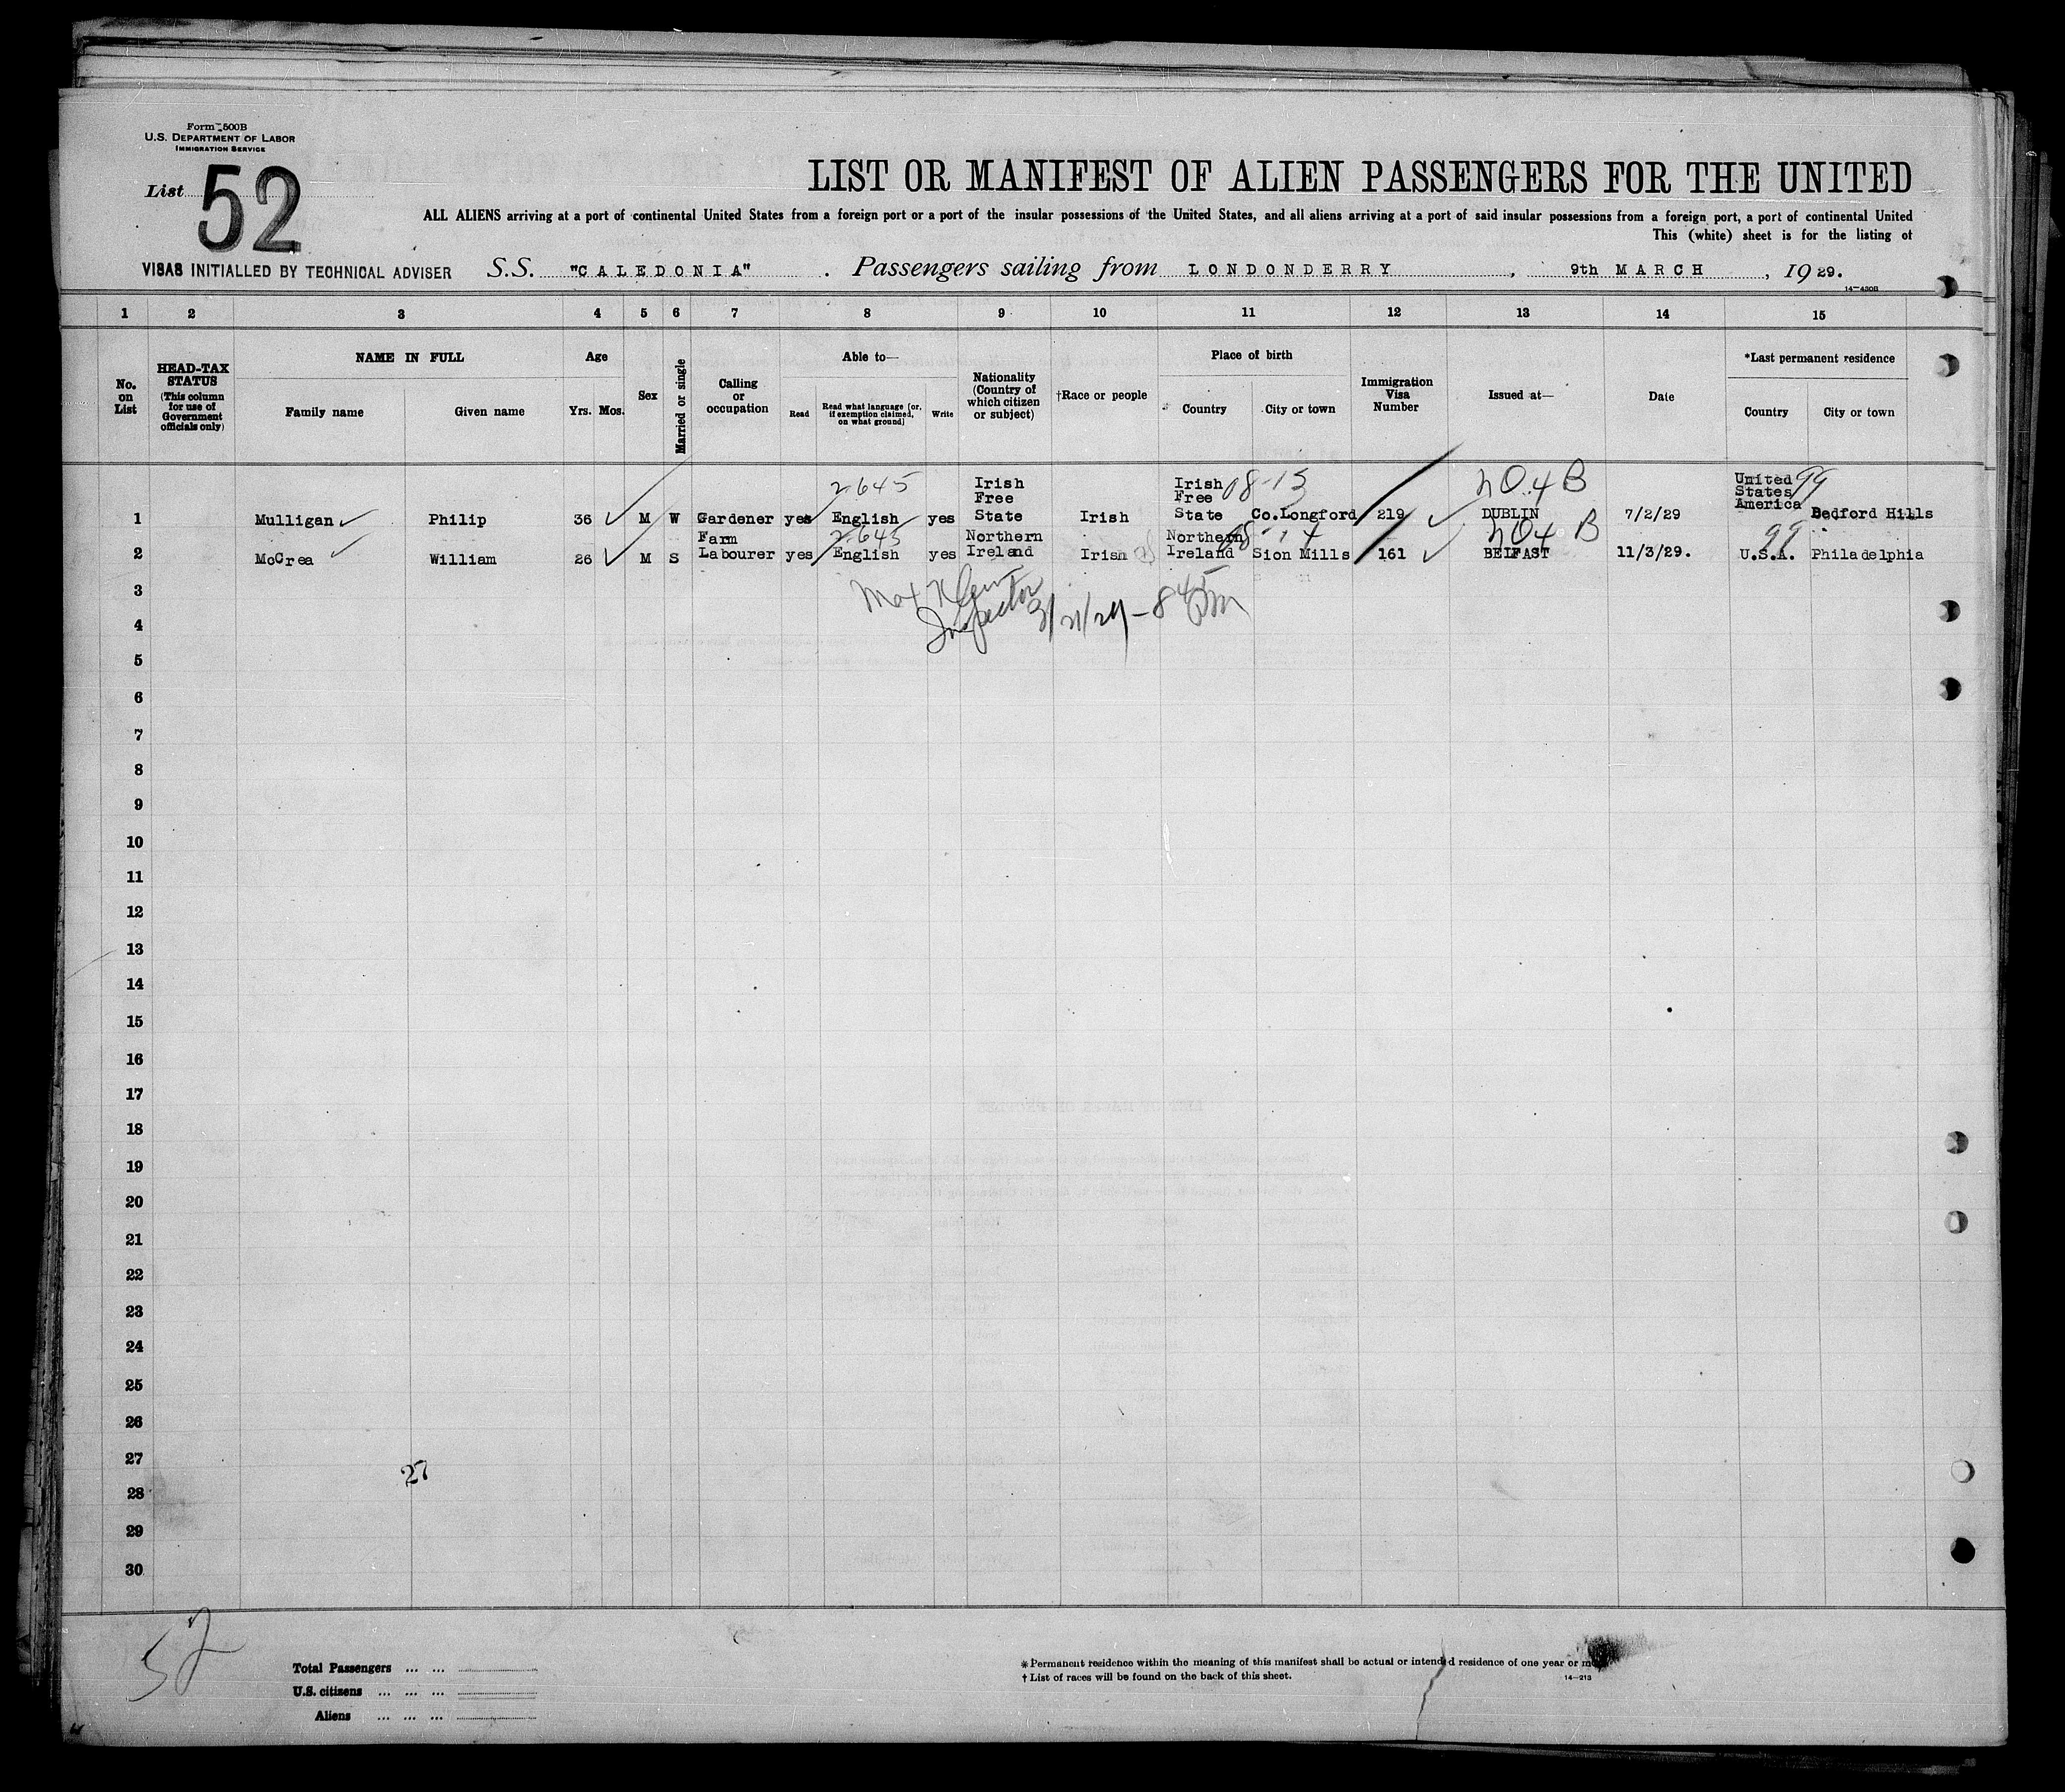 Form 500B
U.S. DEPARTMENT OF LABOR
IMMIGRATION SERVICE
List 52
LIST OR MANIFEST OF ALIEN PASSENGERS FOR THE UNITED
ALL ALIENS arriving at a port of continental United States from a foreign port or a port of the insular possessions of the United States, and all aliens arriving at a port of said insular possessions from a foreign port, a port of continental United
This (white) sheet is for the listing of
VISAS INITIALLED BY TECHNICAL ADVISER S.S. "CALEDONIA" . Passengers sailing from LONDONDERRY , 9th MARCH , 1929.
14—430B
1 2 3 4 5 6 7 8 9 10 11 12 13 14 15
No. on List
HEAD-TAX STATUS (This column for use of Government officials only)
NAME IN FULL
Family name Given name
Age
Yrs. Mos.
Sex
Married or single
Calling or occupation
Able to—
Read Read what language [or, if exemption claimed, on what ground] Write
Nationality (Country of which citizen or subject)
†Race or people
Place of birth
Country City or town
Immigration Visa Number
Issued at—
Date
*Last permanent residence
Country City or town
2-645 08-13 204B 99
1 Mulligan Philip 36 M W Gardener yes English yes Irish Free State Irish Irish Free State Co.Longford 219 DUBLIN 7/2/29 United States America Bedford Hills
2-645 204 B 99
2 McCrea William 26 M S Farm Labourer yes English yes Northern Ireland Irish Northern Ireland Sion Mills 161 BELFAST 11/3/29. U.S.A. Philadelphia
3
Inspector
4
5
6
7
8
9
10
11
12
13
14
15
16
17
18
19
20
21
22
23
24
25
26
27
27
28
29
30
52
Total Passengers ... ...
U.S. citizens ... ... ...
Aliens ... ... ...
*Permanent residence within the meaning of this manifest shall be actual or intended residence of one year or
† List of races will be found on the back of this sheet.
14—213